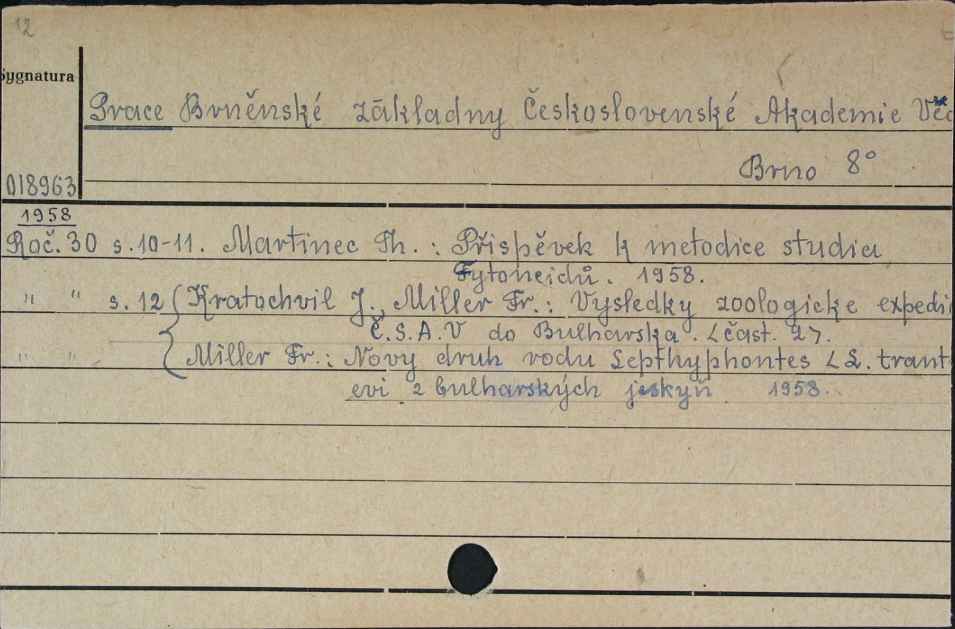 12
Sygnatura
Prace Brněnské základny Československé Akademie Věd
Brno 8°
018963
1958
Roč. 30 s. 10-11. Martinec Th. : Přispěvek k metodice studia
Fytoncidů. 1958.
" " s. 12 Kratochvil J., Miller Fr.: Vysledky zoologicke expedi
Č.S.A.V do Bulharska. <část. 2>.
" " Miller Fr.: Novy druh rodu Lepthyphontes <L. trant
evi z bulharských jeskyň 1958.